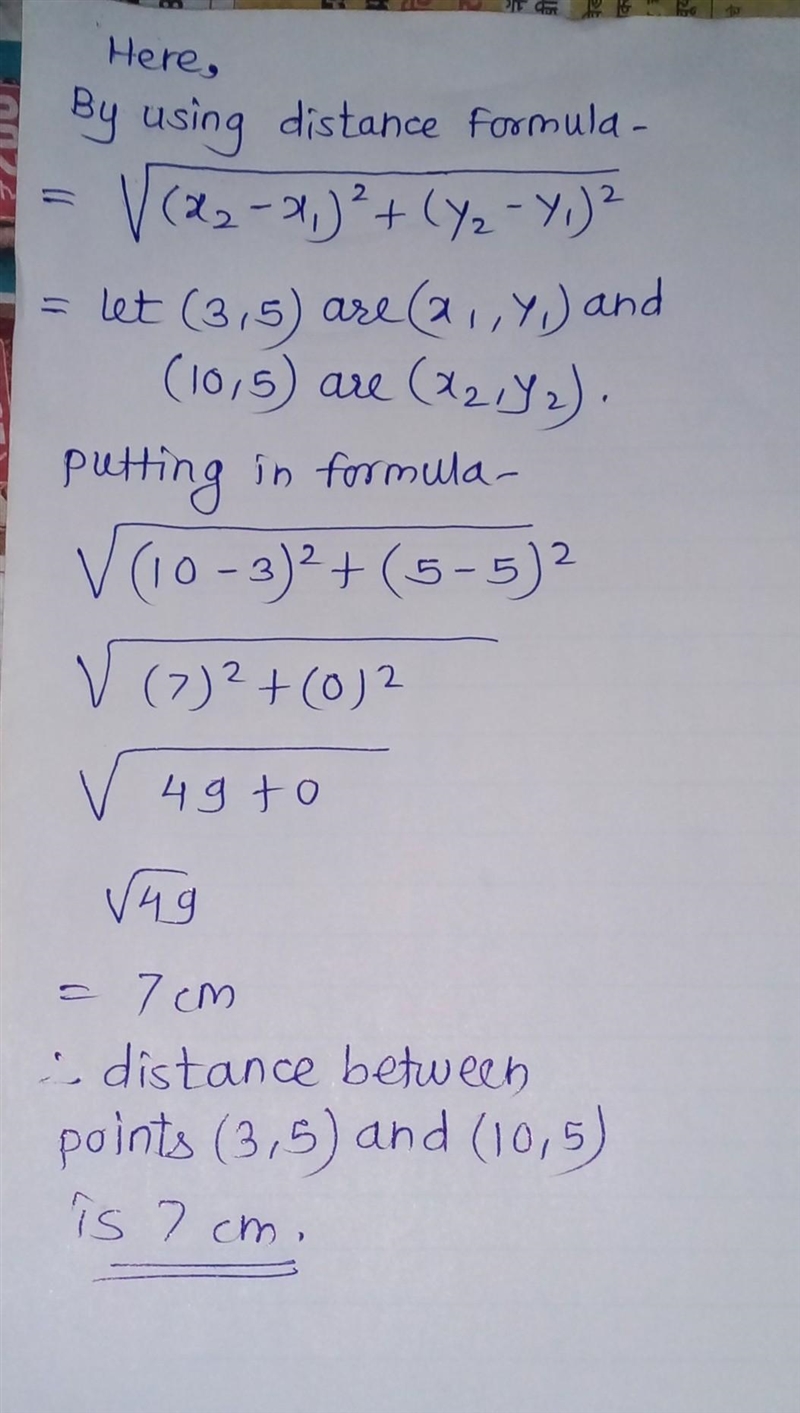 Here,
By using distance formula -
= √(x₂ - x₁)² + (y₂ - y₁)²
= let (3,5) are (x₁, y₁) and
(10,5) are (x₂, y₂).
putting in formula -
√(10 - 3)² + (5 - 5)²
√(7)² + (0)²
√49 + 0
√49
= 7 cm
∴ distance between
points (3,5) and (10,5)
is 7 cm.